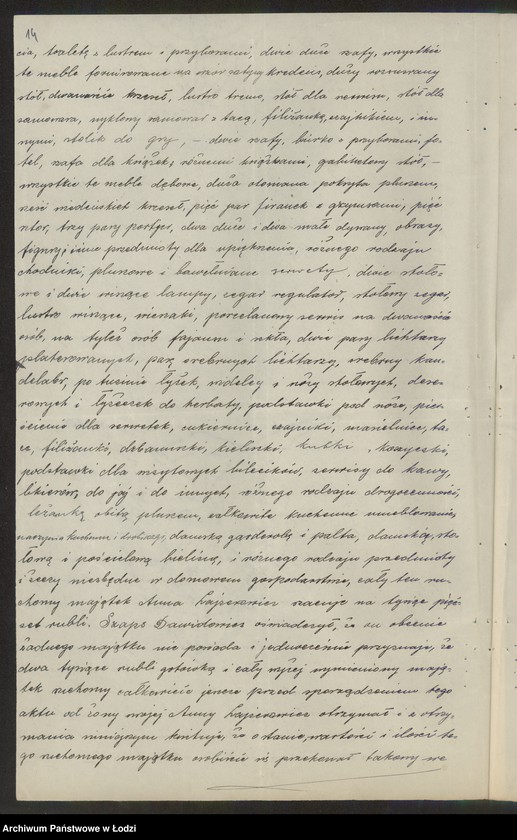 14
cia, toaletę z lustrem i przyborami, dwie duże szafy, wszystkie
te meble fornirowane na wzór satyny kredens, duży rozsuwany
stół, dwanaście krzeseł, lustro tremo, stół dla, stół dla
samowara, niklowy samowar z tacą, filiżanką, czajnikiem, i in-
nymi, stolik do gry, – dwie szafy, biurko z przyborami, fo-
tel, szafa dla książek z różnemi książkami, gabinetowy stół, –
wszystkie te meble dębowe, duża otomana pokryta pluszem,
sześć wiedeńskich krzeseł, pięć par firanek z gzymsami, pięć
stor, trzy pary portjer, dwa duże i dwa małe dywany, obrazy,
figury i inne przedmioty dla upiększenia, różnego rodzaju
chodniki, pluszowe i bawełniane serwety, dwie stoło-
we i duże wiszące lampy, zegar regulator, stołowy zegar,
lustro wiszące, wieszaki, porcelanowy serwis na dwanaście
osób, na tyleż osób fajans i szkła, dwie pary lichtarzy
platerowanych, parę srebrnych lichtarzy, srebrny kan-
delabr, po tuzinie łyżek, widelcy i noży stołowych, dese-
rowych i łyżeczek do herbaty, podstawki pod noże, pier-
ścienie dla serwetek, cukiernice, czajniki, maselnice, ta-
ce, filiżanki, dzbanuszki, kieliszki, kubki, koszyczki,
podstawki dla wizytowych bilecików, serwisy do kawy,
likierów, do jaj i do innych, różnego rodzaju drogocenności,
leżankę obitą pluszem, całkowite kuchenne umeblowanie,
naczynia kuchenne i, damską garderobę i palta, damską, sto-
łową i pościelową bieliznę, i różnego rodzaju przedmioty
i rzeczy niezbędne w domowem gospodarstwie, cały ten ru-
chomy majątek Anna Łajzerowicz szacuje na tysiąc pięć-
set rubli. Szaps Dawidowicz oświadczył, że on obecnie
żadnego majątku nie posiada i jednocześnie przyznaje, że
dwa tysiące rubli gotówką i cały wyżej wymieniony mają-
tek ruchomy całkowicie jeszcze przed sporządzeniem tego
aktu od żony mojej Anny Łajzerowicz otrzymał i z otrzy-
mania niniejszym kwituje, że o stanie, wartości i ilości te-
go ruchomego majątku osobiście się przekonał takowy we
Archiwum Państwowe w Łodzi